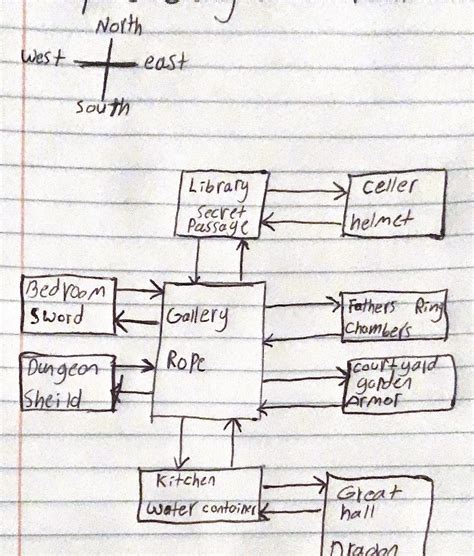 North
West east
South
Library
Secret
Passage
Celler
helmet
Bedroom
Sword
Gallery
Rope
Fathers Ring
Chambers
Dungeon
Sheild
Courtyard
garden
Armor
Kitchen
Water container
Great
hall
Dragon